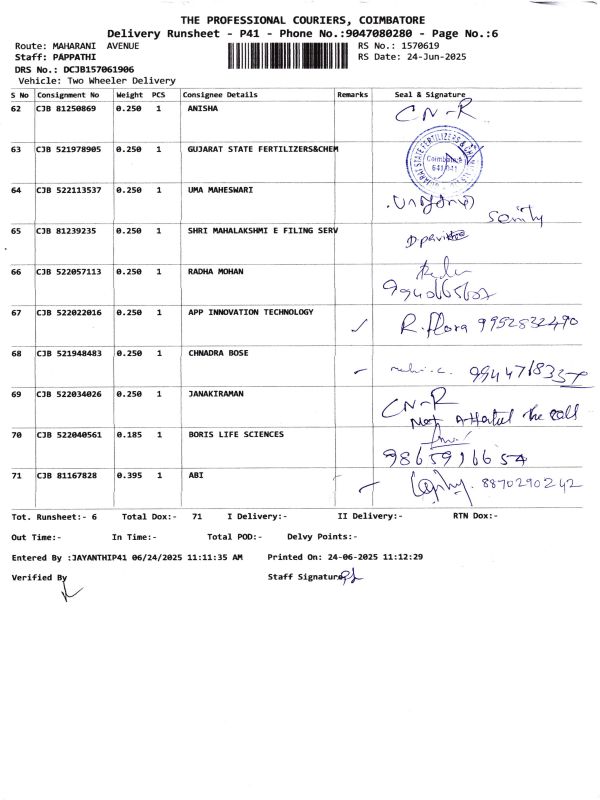 THE PROFESSIONAL COURIERS, COIMBATORE
Delivery Runsheet - P41 - Phone No.:9047080280 - Page No.:6
Route: MAHARANI AVENUE
RS No.: 1570619
Staff: PAPPATHI
RS Date: 24-Jun-2025
DRS No.: DCJB157061906
Vehicle: Two Wheeler Delivery
S No Consignment No Weight PCS Consignee Details Remarks Seal & Signature
62 CJB 81250869 0.250 1 ANISHA CN-R
63 CJB 521978905 0.250 1 GUJARAT STATE FERTILIZERS&CHEM
Coimbatore
641 041
64 CJB 522113537 0.250 1 UMA MAHESWARI
65 CJB 81239235 0.250 1 SHRI MAHALAKSHMI E FILING SERV
66 CJB 522057113 0.250 1 RADHA MOHAN
67 CJB 522022016 0.250 1 APP INNOVATION TECHNOLOGY R. flora 9952832490
68 CJB 521948483 0.250 1 CHNADRA BOSE
69 CJB 522034026 0.250 1 JANAKIRAMAN CN-R
the call
70 CJB 522040561 0.185 1 BORIS LIFE SCIENCES
9865916654
71 CJB 81167828 0.395 1 ABI 8870290242
Tot. Runsheet:- 6 Total Dox:- 71 I Delivery:- II Delivery:- RTN Dox:-
Out Time:- In Time:- Total POD:- Delvy Points:-
Entered By :JAYANTHIP41 06/24/2025 11:11:35 AM Printed On: 24-06-2025 11:12:29
Verified By Staff Signature